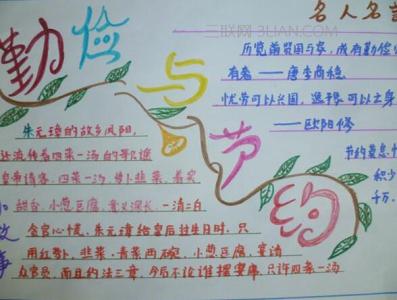 勤俭与节约
三联网 3LIAN.COM
名人名言
历览前贤国与家，成有勤俭
有奢 —— 唐李商隐
忧劳可以兴国，逸豫可以亡身
—— 欧阳修
节约莫怠
积少
千万。
小故事
朱元璋的故乡凤阳，
还流传着四菜一汤的歌谣
皇帝请客，四菜一汤，萝卜韭菜，着实
甜香，小葱豆腐，意义深长，一清二白
贪官心慌，朱元璋给皇后过生日时，只
用红萝卜、韭菜，青菜两碗，小葱豆腐，宴请
众官员，而且约法三章，今后不论谁摆宴席，只许四菜一汤